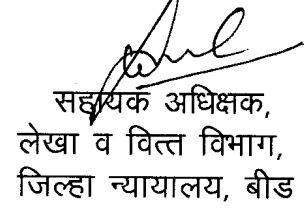 सहायक अधिक्षक,
लेखा व वित्त विभाग,
जिल्हा न्यायालय, बीड